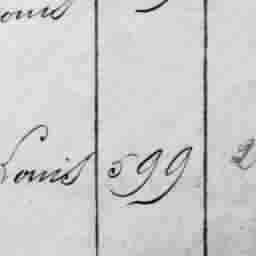 Louis
Louis 599 2